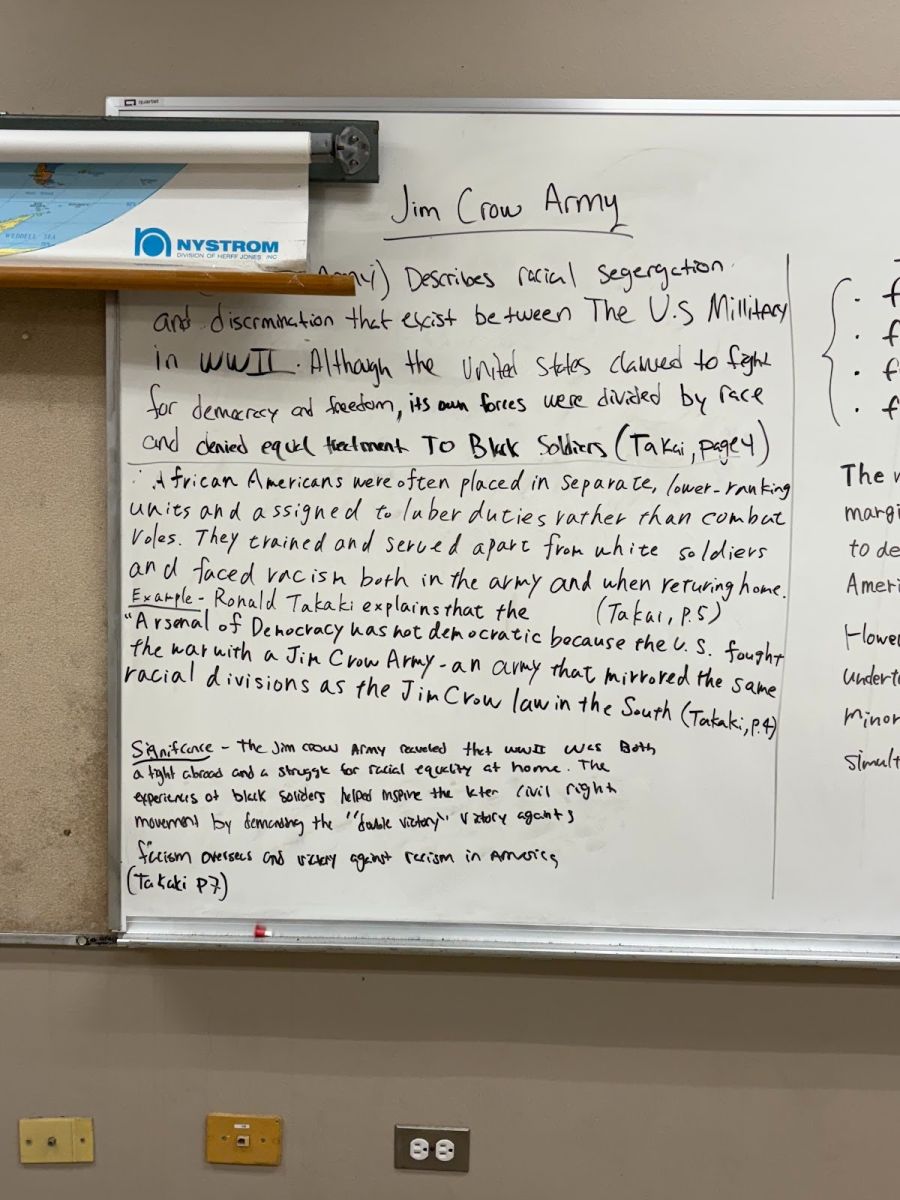 quartet
WEDDELL SEA
NYSTROM
DIVISION OF HERFF JONES, INC
Jim Crow Army
Army) Describes racial segergction
and discrmination that exist between The U.S Millitary
in WWII. Although the United States clamed to fight
for democracy and freedom, its own forces were divided by race
and denied equal treetment To Black Soldiers (Takai, page 4)
African Americans were often placed in separate, lower-ranking
units and assigned to luber duties rather than combat
roles. They trained and served apart from white soldiers
and faced racism both in the army and when returing home.
Example - Ronald Takaki explains that the (Takai, P.5)
"Arsenal of Democracy was not democratic because the U.S. fought
the war with a Jim Crow Army - an army that mirrored the same
racial divisions as the Jim Crow law in the South (Takaki, p.4)
Signifcance - The Jim crow Army recveled that wwII was Both
a fight abroad and a struggle for racial equality at home. The
experiences of black soliders helped inspire the later civil right
movement by demanding the "double victory" victory agants
facism overseas and victory against racism in America
(Takaki P7)
The
margi
to de
Ameri
Howe
underto
minor
simult